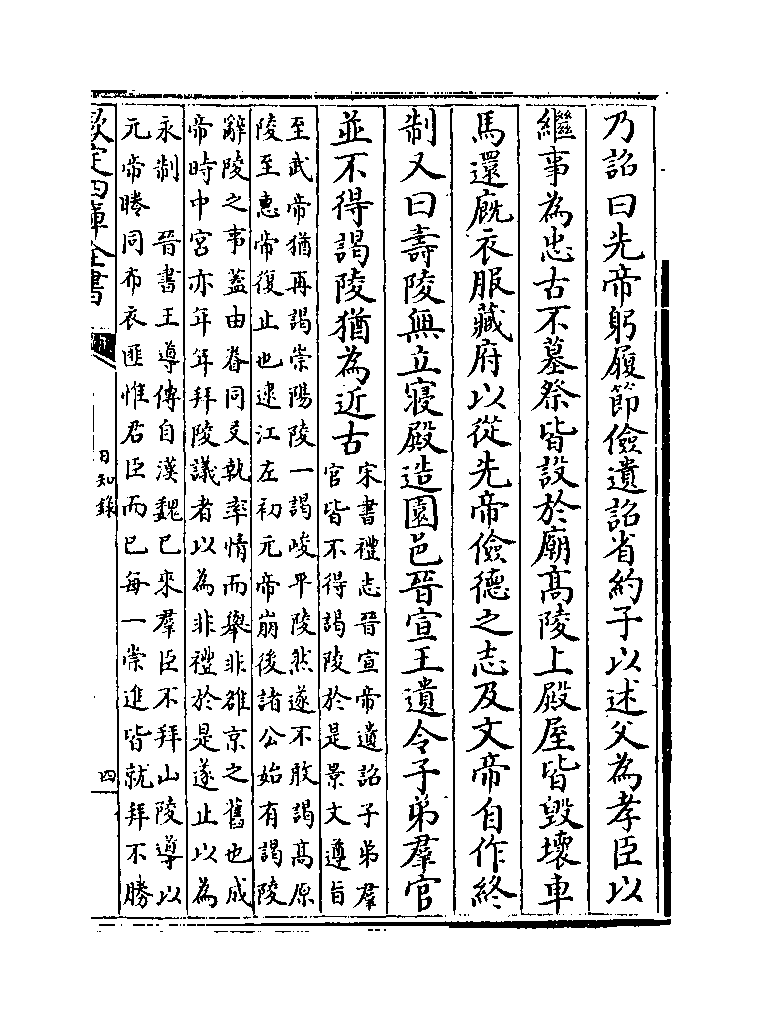 乃詔曰先帝躬履節儉遺詔省約子以述父為孝臣以
繼事為忠古不墓祭皆設於廟高陵上殿屋皆毀壞車
馬還廐衣服藏府以從先帝儉德之志及文帝自作終
制又曰壽陵無立寢殿造園邑晉宣王遺令子弟羣官
並不得謁陵猶為近古
宋書禮志晉宣帝遺詔子弟羣
官皆不得謁陵於是景文遵旨
至武帝猶再謁崇陽陵一謁峻平陵然遂不敢謁高原
陵至惠帝復止也逮江左初元帝崩後諸公始有謁陵
辭陵之事葢由眷同友執率情而舉非雒京之舊也成
帝時中宮亦年年拜陵議者以為非禮於是遂止以為
永制　晉書王導傳自漢魏已來羣臣不拜山陵導以
元帝睠同布衣匪惟君臣而已每一崇進皆就拜不勝
欽定四庫全書
日知錄
四